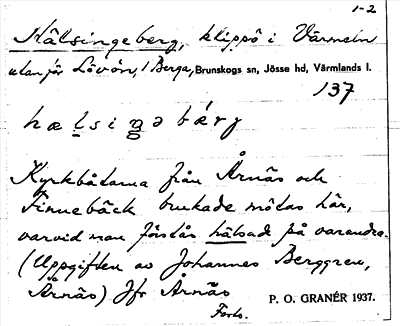 1-2
Hälsingeberg, klippö i Värmeln
utanför Lövön, / Berga, Brunskogs sn, Jösse hd, Värmlands l.
137
hælsiŋəbærj
Kyrkbåtarna från Årnäs och
Finnebäck brukade mötas här,
varvid man förstås hälsade på varandra.
(Uppgiften av Johannes Berggren,
Årnäs) Jfr Årnäs
Forts.
P. O. GRANÉR 1937.